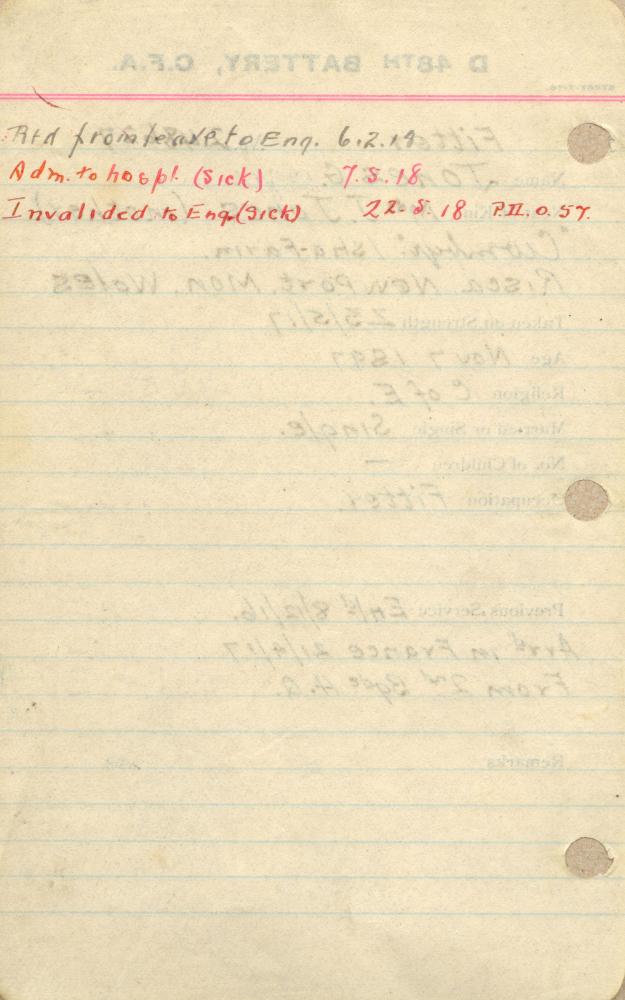 Rtd from leave to Eng. 6.2.18
Adm. to hospl. (Sick) 7.5.18
Invalided to Eng. (Sick) 22.5.18 P.II.O. 57.
D 48TH BATTERY, C.F.A.
Fitter
Name Jones, G.
Risca, New Port, Mon, Wales
Taken on Strength 23/5/17
Age Nov 7 1897
Religion C of E.
Married or Single Single.
No. of Children —
Occupation Fitter.
Previous Service Enls 8/2/16.
Arrd in France 21/4/17
From 2nd Bgde H.Q.
Remarks